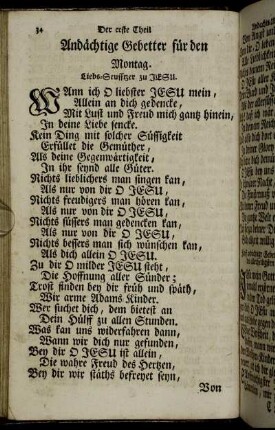 34 Der erste Theil
Andächtige Gebetter für den
Montag.
Liebs-Seuffzer zu JESU.
WAnn ich O liebster JESU mein,
Allein an dich gedencke,
Mit Lust und Freud mich gantz hinein,
In deine Liebe sencke.
Kein Ding mit solcher Süssigkeit
Erfüllet die Gemüther,
Als deine Gegenwärtigkeit,
In ihr seynd alle Güter.
Nichts liedlichers man singen kan,
Als nur von dir O JESU,
Nichts freudigers man hören kan,
Als nur von dir O JESU,
Nichts süssers man gedencken kan,
Als nur von dir O JESU,
Nichts bessers man sich wünschen kan,
Als dich allein O JESU.
Zu dir O milder JESU steht,
Die Hoffnung aller Sünder;
Trost finden bey dir früh und späth,
Wir arme Adams Kinder.
Wer suchet dich, dem bietest an
Dein Hülff zu allen Stunden.
Was kan uns widerfahren dann,
Wann wir dich nur gefunden,
Bey dir O JESU ist allein,
Die wahre Freud des Hertzen,
Bey dir wir stäths befreyet seyn,
Von